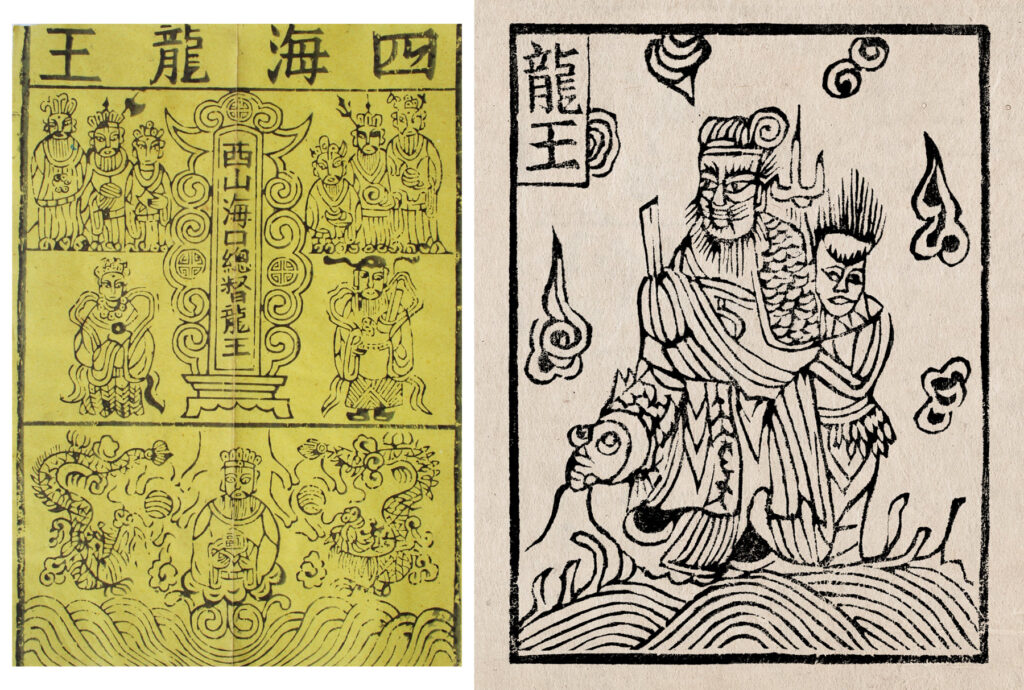 四海龍王
西山海口總督龍王
龍王